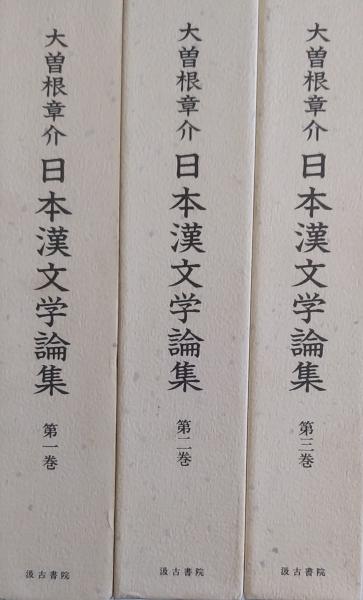 大曽根章介
日本漢文学論集
第一巻
汲古書院
大曽根章介
日本漢文学論集
第二巻
汲古書院
大曽根章介
日本漢文学論集
第三巻
汲古書院